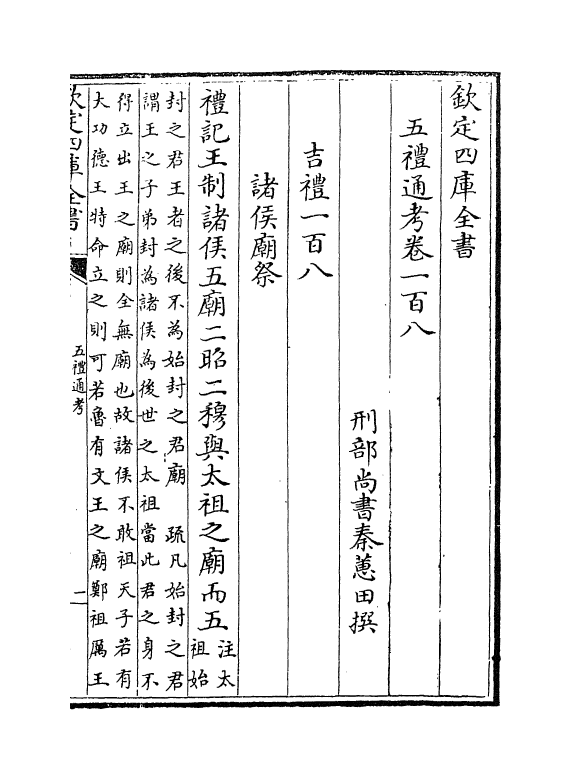 欽定四庫全書
五禮通考卷一百八
刑部尚書秦蕙田撰
吉禮一百八
諸侯廟祭
禮記王制諸侯五廟二昭二穆與太祖之廟而五
注太
祖始
封之君王者之後不為始封之君廟　疏凡始封之君
謂王之子弟封為諸侯為後世之太祖當此君之身不
得立出王之廟則全無廟也故諸侯不敢祖天子若有
大功德王特命立之則可若魯有文王之廟鄭祖厲王
欽定四庫全書
五禮通考